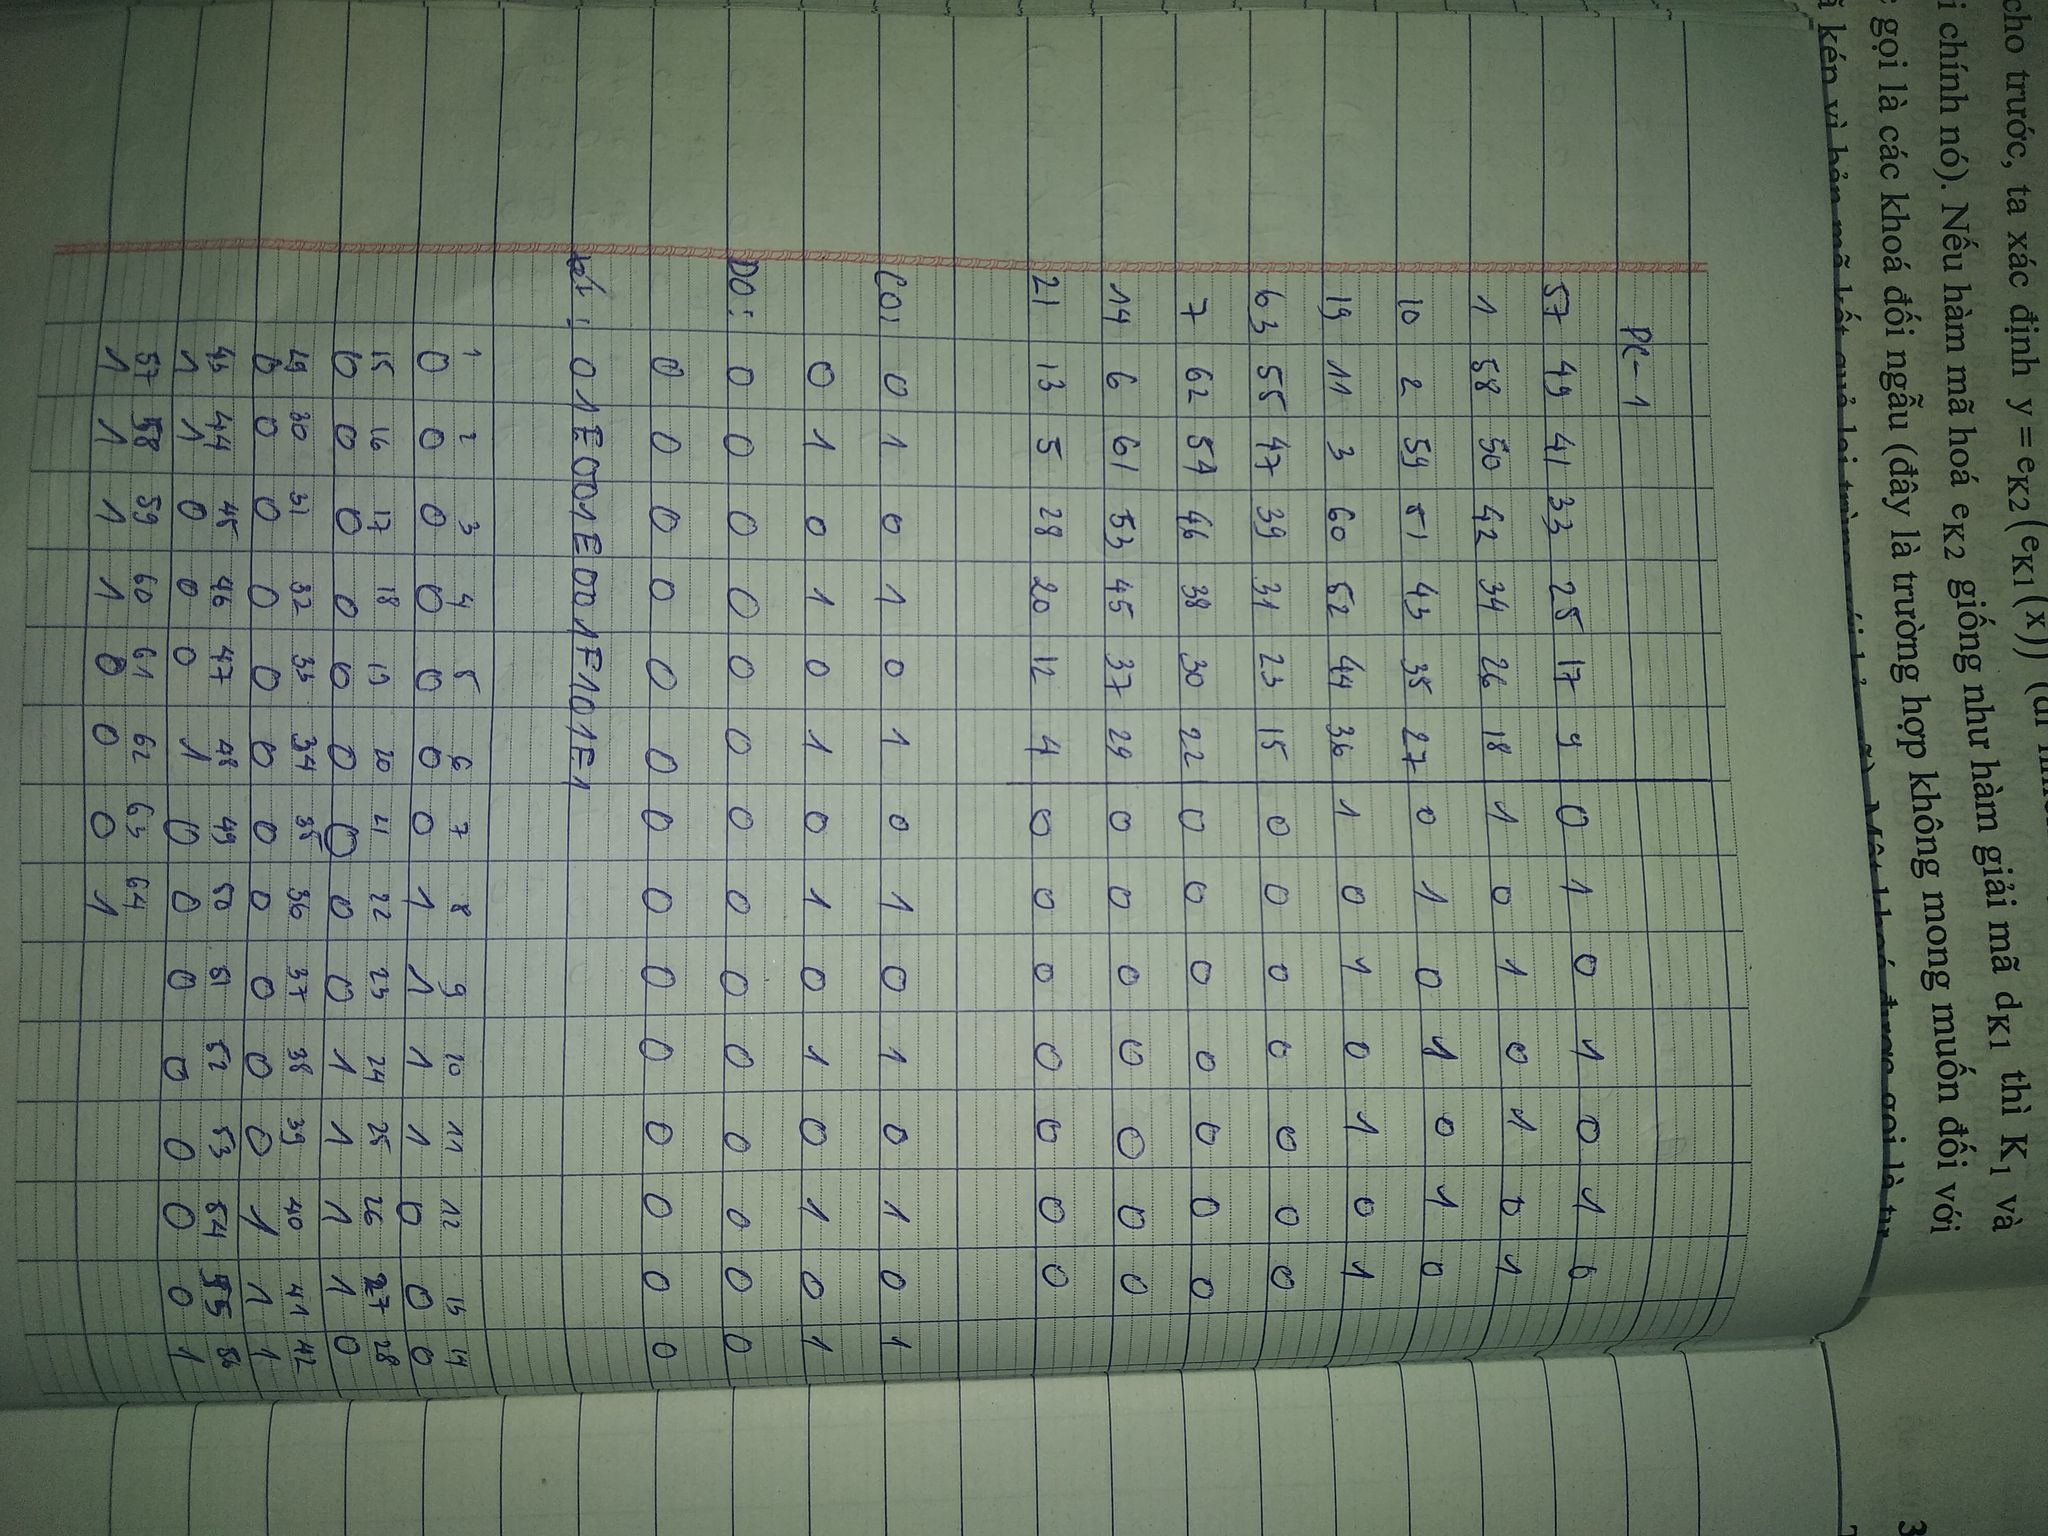 cho trước, ta xác định y = eK2(eK1(x))
i chính nó). Nếu hàm mã hoá eK2 giống như hàm giải mã dK1 thì K1 và
gọi là các khoá đối ngẫu (đây là trường hợp không mong muốn đối với
kép vì bản mã kết quả lại trùng với bản mã). Một khoá được gọi là tự
3
PC-1
57 49 41 33 25 17 9 0 1 0 1 0 1 0
1 58 50 42 34 26 18 1 0 1 0 1 0 1
10 2 59 51 43 35 27 0 1 0 1 0 1 0
19 11 3 60 52 44 36 1 0 1 0 1 0 1
63 55 47 39 31 23 15 0 0 0 0 0 0 0
7 62 54 46 38 30 22 0 0 0 0 0 0 0
14 6 61 53 45 37 29 0 0 0 0 0 0 0
21 13 5 28 20 12 4 0 0 0 0 0 0 0
C0: 0 1 0 1 0 1 0 1 0 1 0 1 0 1
0 1 0 1 0 1 0 1 0 1 0 1 0 1
D0: 0 0 0 0 0 0 0 0 0 0 0 0 0 0
0 0 0 0 0 0 0 0 0 0 0 0 0 0
: 01E001E001F101F1
1 2 3 4 5 6 7 8 9 10 11 12 13 14
0 0 0 0 0 0 0 1 1 1 1 0 0 0
15 16 17 18 19 20 21 22 23 24 25 26 27 28
0 0 0 0 0 0 0 0 0 1 1 1 1 0
29 30 31 32 33 34 35 36 37 38 39 40 41 42
0 0 0 0 0 0 0 0 0 0 0 1 1 1
43 44 45 46 47 48 49 50 51 52 53 54 55 56
1 1 0 0 0 1 0 0 0 0 0 0 0 1
57 58 59 60 61 62 63 64
1 1 1 1 0 0 0 1